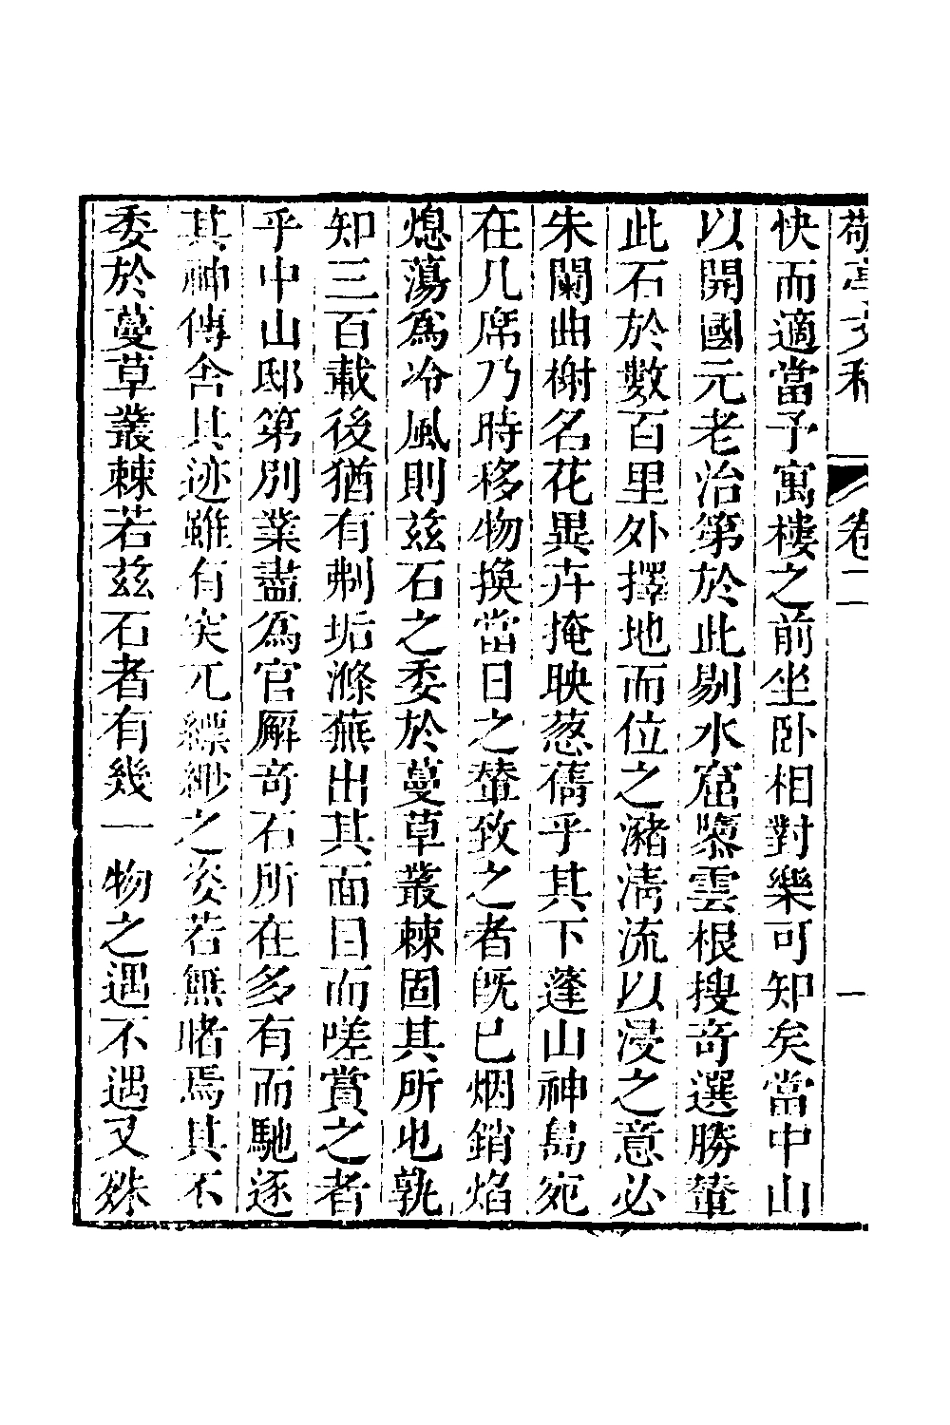 敬亭文稿 卷二 一
快而適當予寓樓之前坐卧相對樂可知矣當中山
以開國元老治第於此剔水窟鑿雲根搜奇選勝輦
此石於數百里外擇地而位之瀦淸流以浸之意必
朱闌曲榭名花異卉掩映葱蒨乎其下蓬山神島宛
在几席乃時移物換當日之輦致之者旣已烟銷焰
熄蕩爲冷風則兹石之委於蔓草叢棘固其所也孰
知三百載後猶有剷垢滌蕪出其面目而嗟賞之者
乎中山邸第別業盡爲官廨奇石所在多有而馳逐
其神傳舍其迹雖有突兀縹緲之姿若無睹焉其不
委於蔓草叢棘若兹石者有幾一物之遇不遇又殊